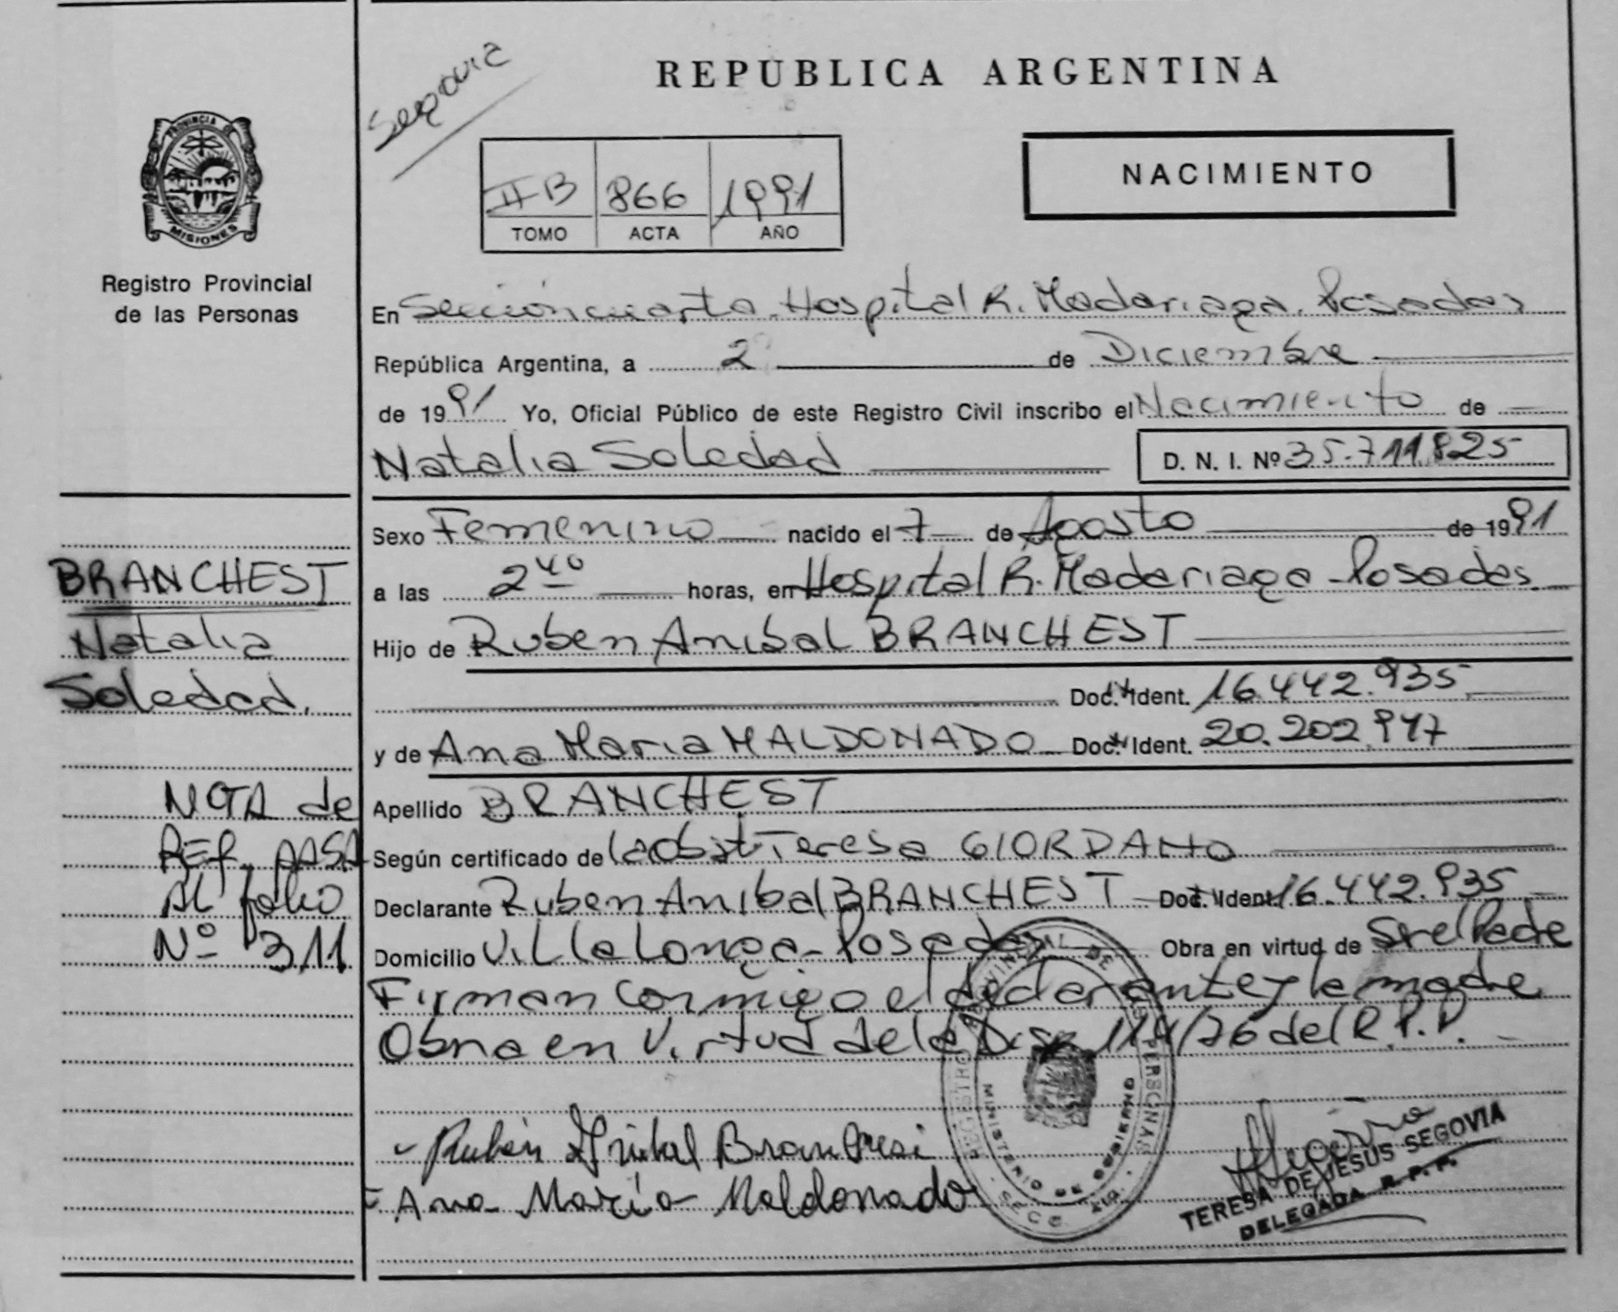 Segovia
REPUBLICA ARGENTINA
PROVINCIA DE
MISIONES
Registro Provincial
de las Personas
II B 866 1991
TOMO ACTA AÑO
NACIMIENTO
En Sección cuarta. Hospital R. Madariaga. Posadas
República Argentina, a 2 de Diciembre
de 1991 Yo, Oficial Público de este Registro Civil inscribo el Nacimiento de
Natalia Soledad D. N. I. Nº 35.711.825
Sexo Femenino nacido el 7 de Agosto de 1991
a las 2 40 horas, en Hospital R. Madariaga - Posadas.
Hijo de Ruben Anibal BRANCHEST
Doc. Ident. 16.442.935
y de Ana Maria MALDONADO Doc. Ident. 20.202.947
Apellido BRANCHEST
Según certificado de la obst. Teresa GIORDANO
Declarante Ruben Anibal BRANCHEST Doc. Ident. 16.442.935
Domicilio Villa Longa - Posadas Obra en virtud de ser el Padre
Firman conmigo el declarante y la madre
Obra en Virtud de la Disp. 114/76 del R.P.P.
BRANCHEST
Natalia
Soledad.
NOTA de
REF. PASA
Al folio
Nº 311
Ruben Anibal Branchesi
Ana María Maldonado
REGISTRO PROVINCIAL DE PERSONAS
MINISTERIO DE GOBIERNO
TERESA DE JESUS SEGOVIA
DELEGADA R. P. P.